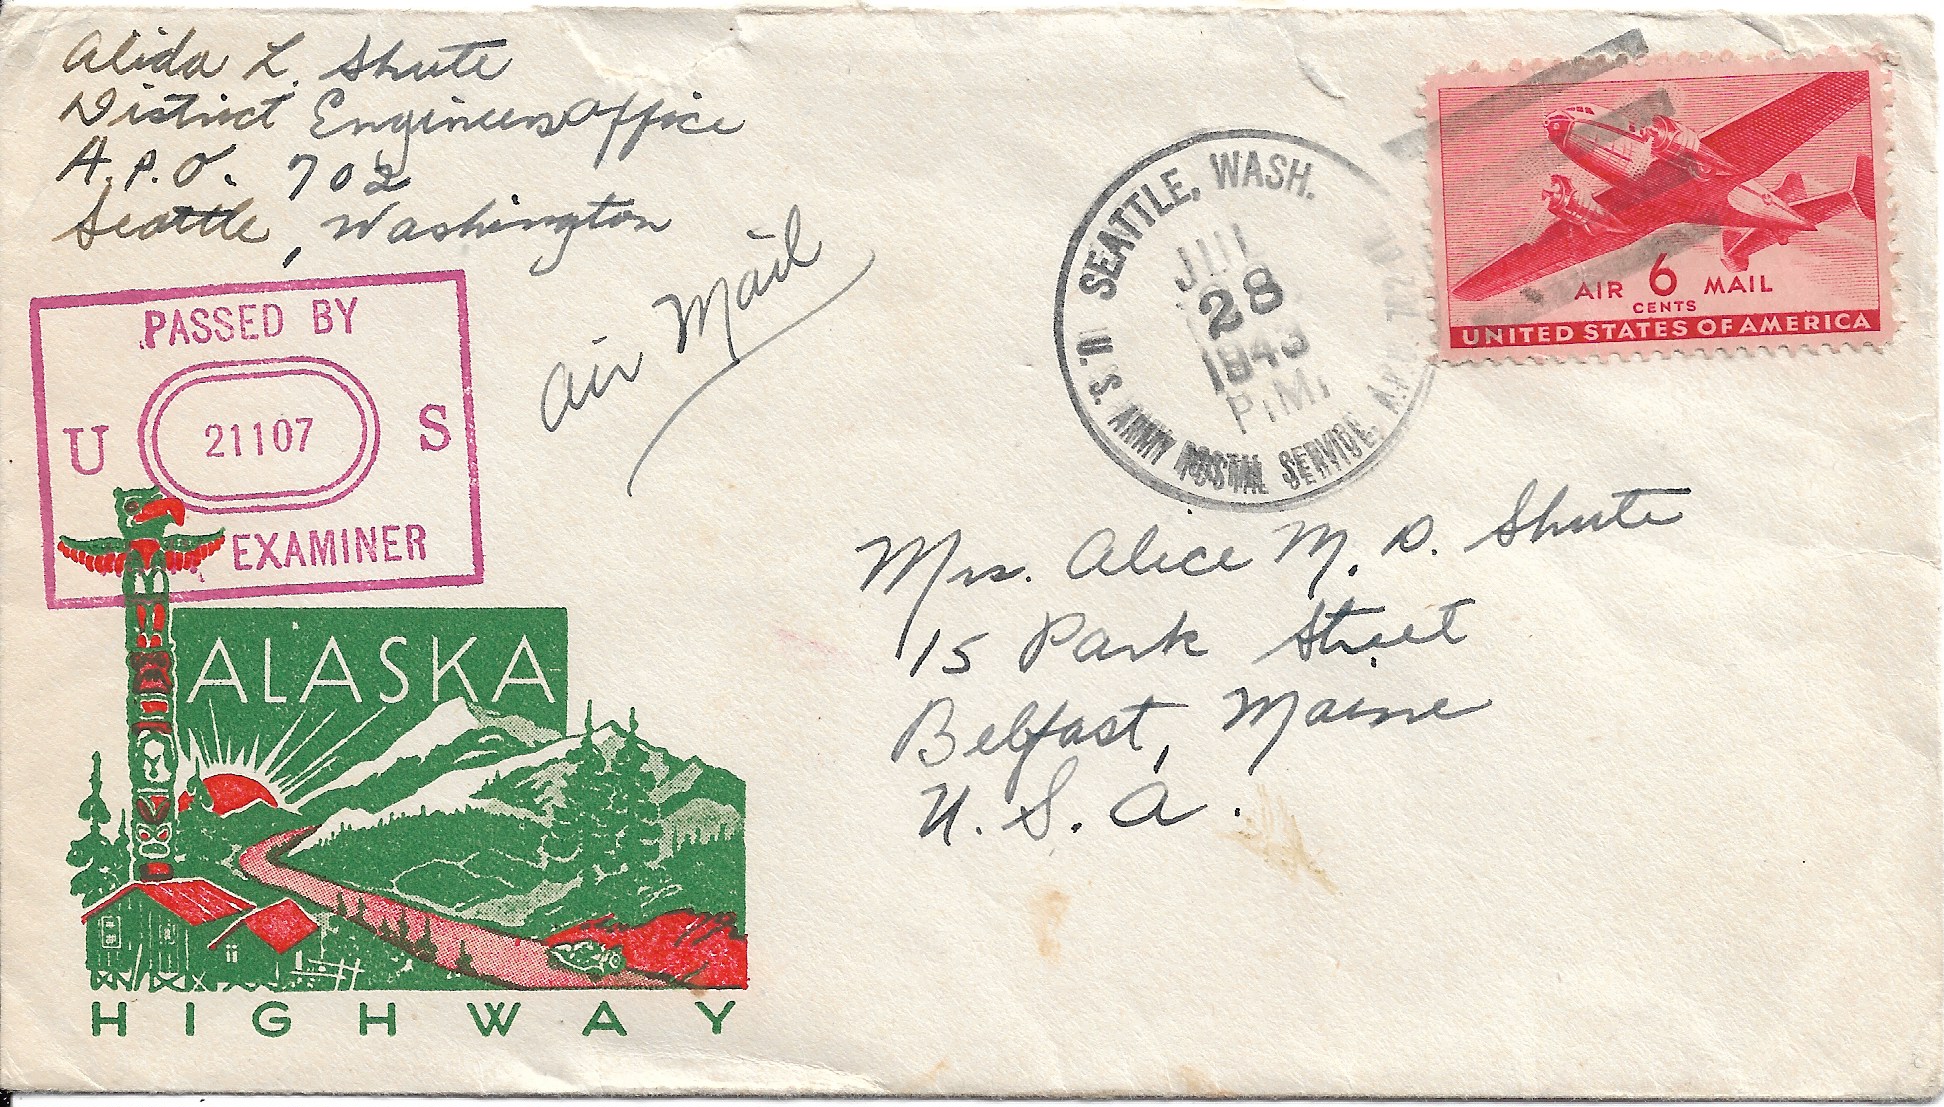 Alida L. Shute
District Engineers Office
A.P.O. 702
Seattle, Washington
Air Mail
PASSED BY
U 21107 S
EXAMINER
SEATTLE, WASH.
JUL
28
1943
P.M.
U.S. ARMY POSTAL SERVICE, A.P.O.
AIR 6 MAIL
CENTS
UNITED STATES OF AMERICA
Mrs. Alice M. D. Shute
15 Park Street
Belfast, Maine
U.S.A.
ALASKA
HIGHWAY